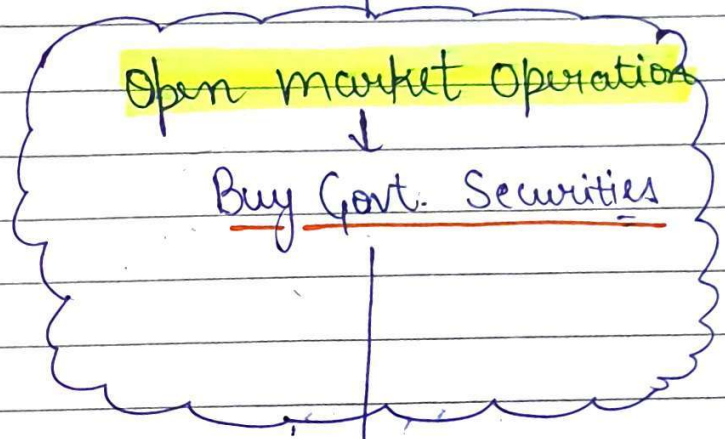 Open market Operation
↓
Buy Govt. Securities